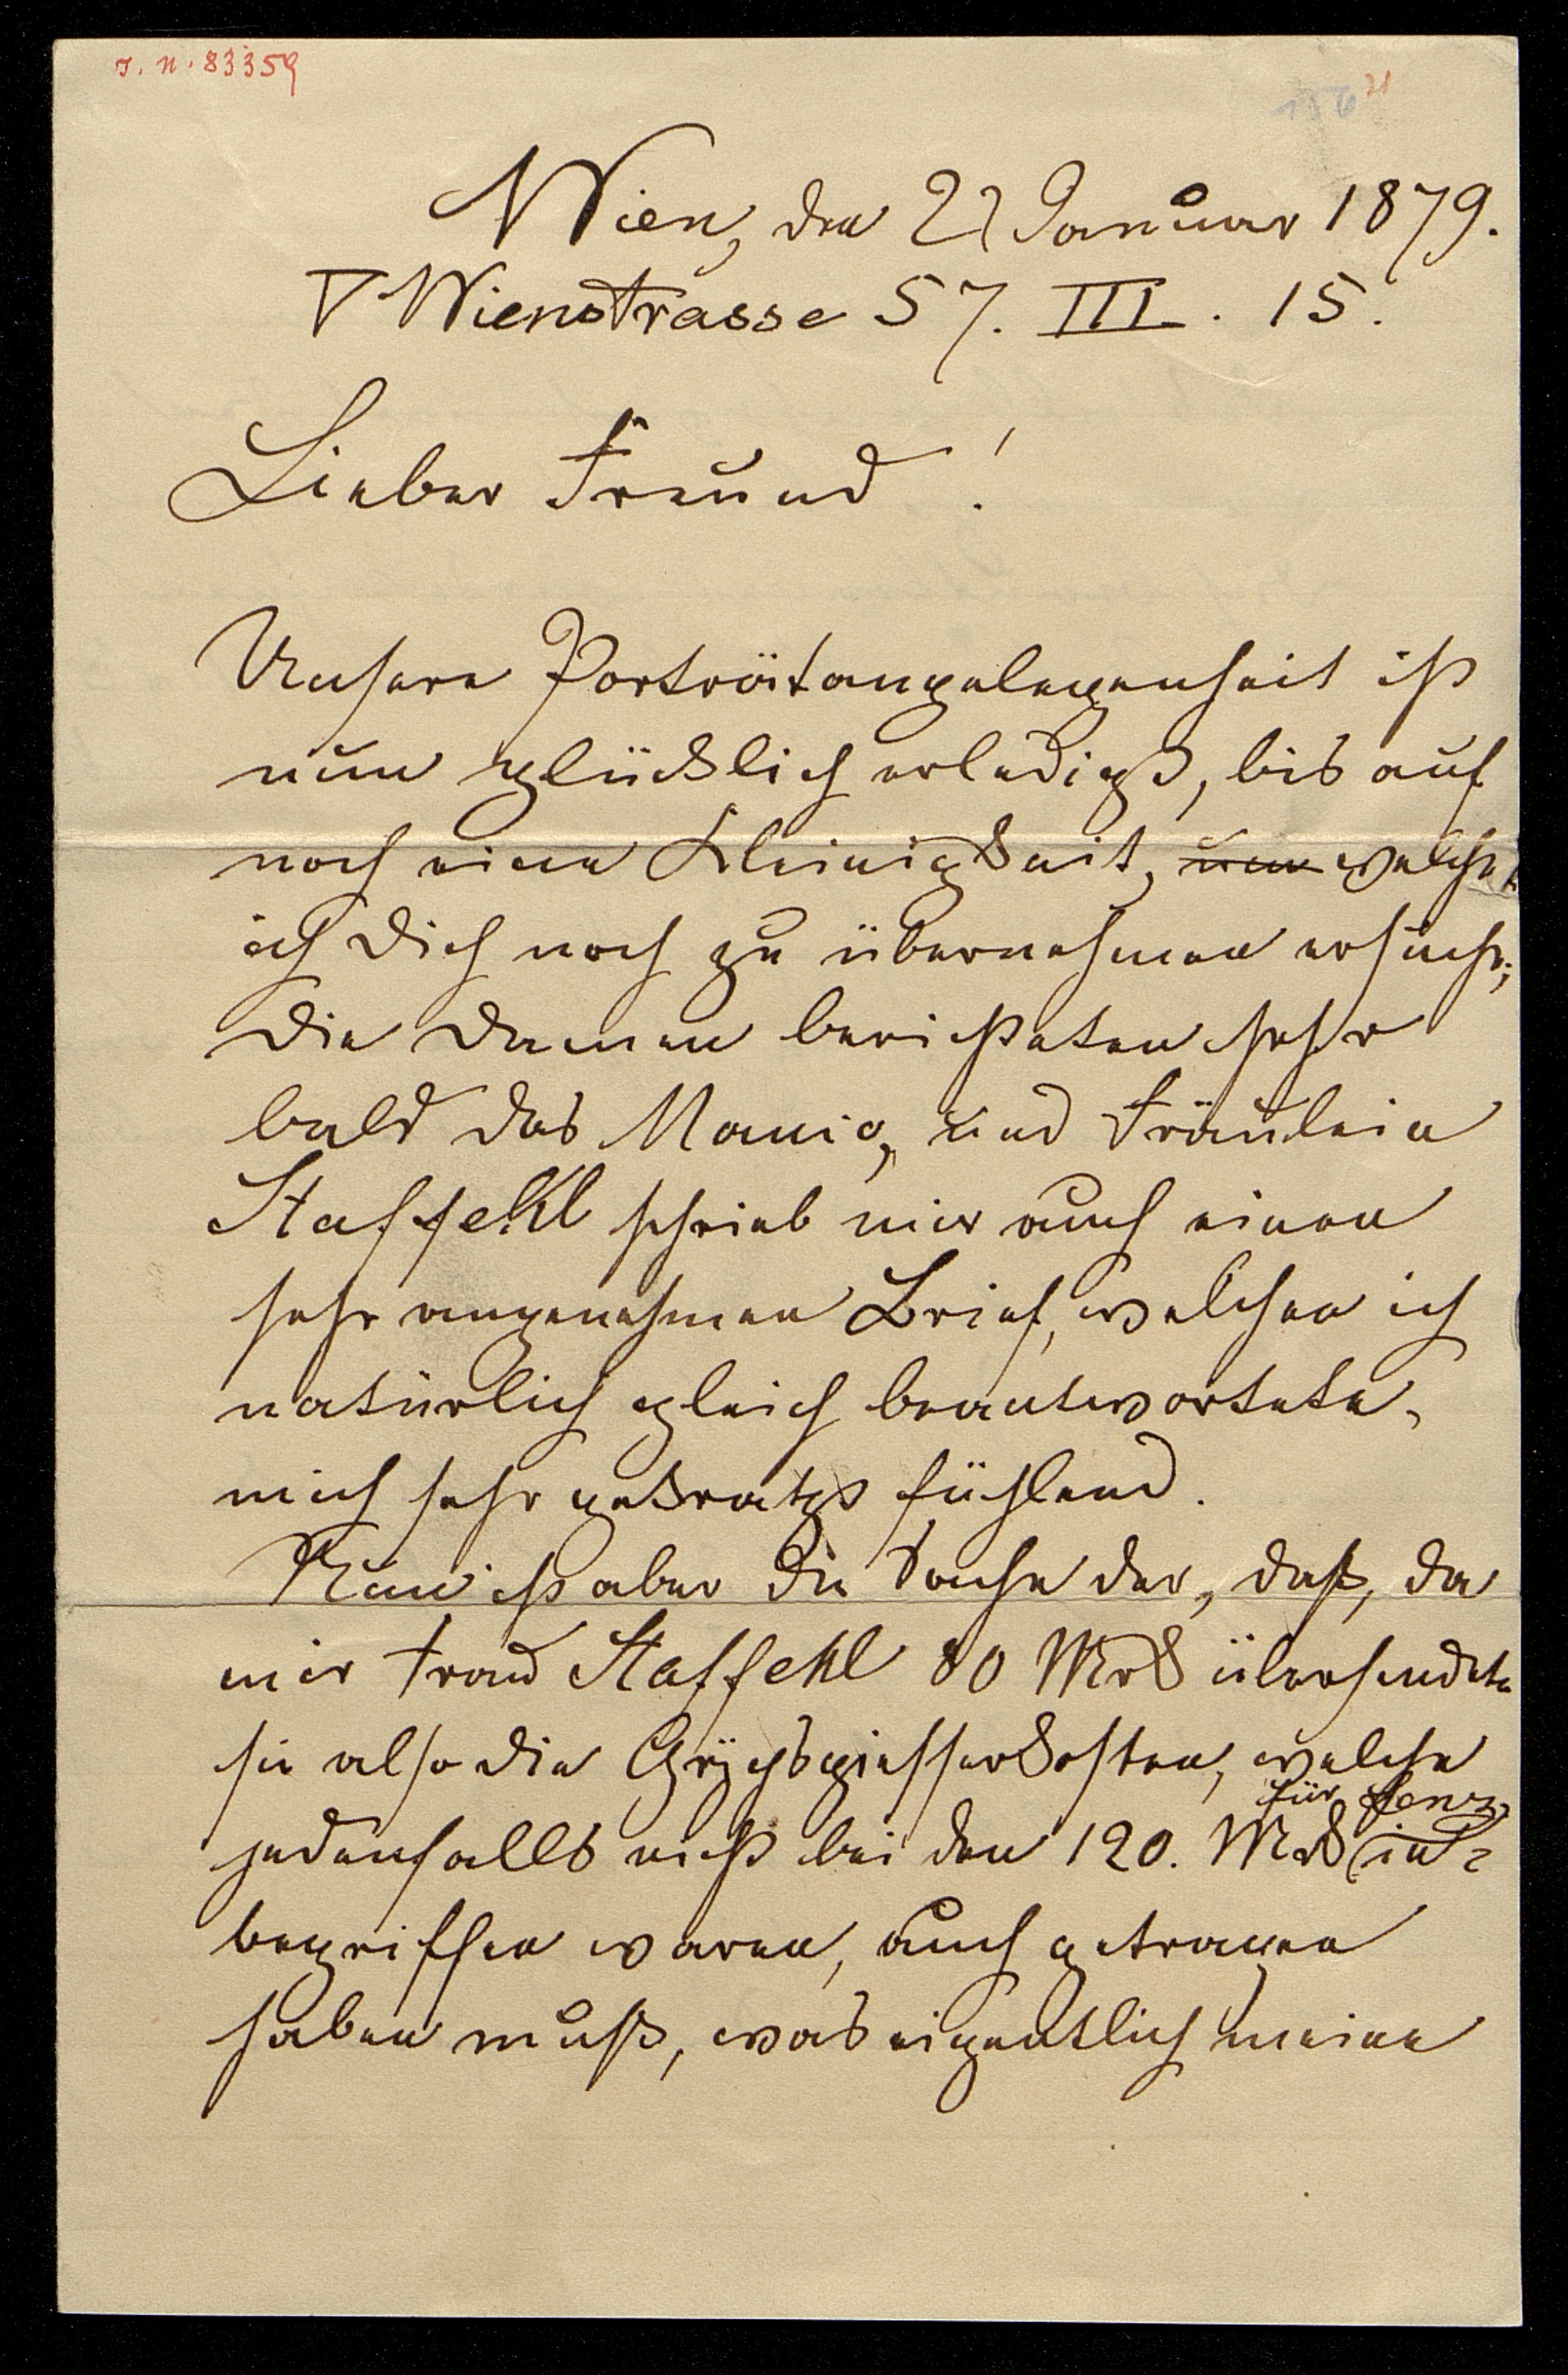 J. N. 83359
Wien, den 21 Januar 1879.
V Wienstrasse 57. III. 15.
Lieber Freund!
Unsere Porträtangelegenheit ist
nun glücklich erledigt, bis auf
noch eine Kleinigkeit, um welche
ich Dich noch zu übernehmen ersuche;
die Damen berichteten sehr
bald das und Fräulein
Staffehl schrieb mir auch einen
sehr angenehmen Brief, welchen ich
natürlich gleich beantwortete,
mich sehr fühlend.
Nun ist aber die Sache der, daß, da
mir Frau Staffehl 80 Mrk übersendete
sie also die Gypsgiesserkosten, welche
für
jedenfalls nicht bei den 120. Mrk in=
begriffen waren, auch getragen
haben muß, was eigentlich meine